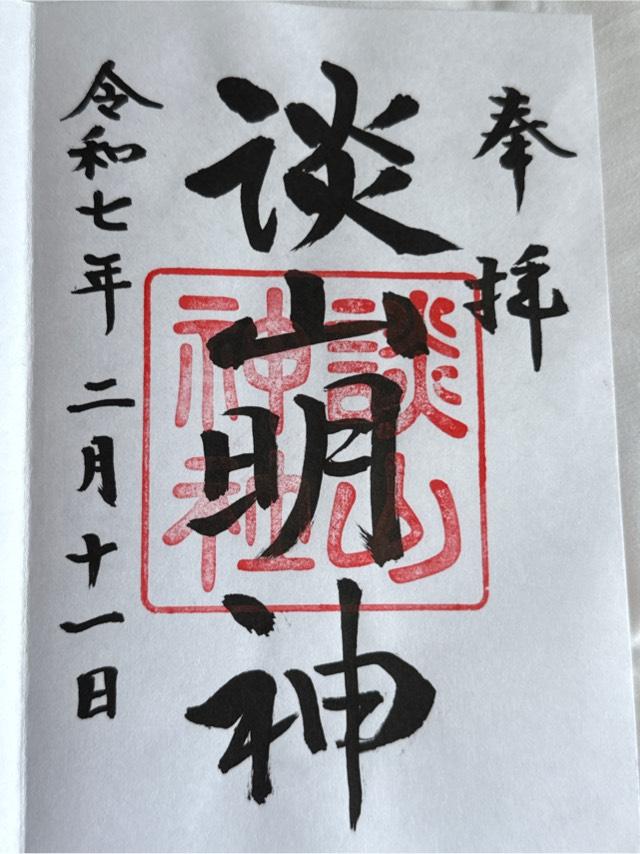 奉拝
談山明神
談山神社
令和七年二月十一日